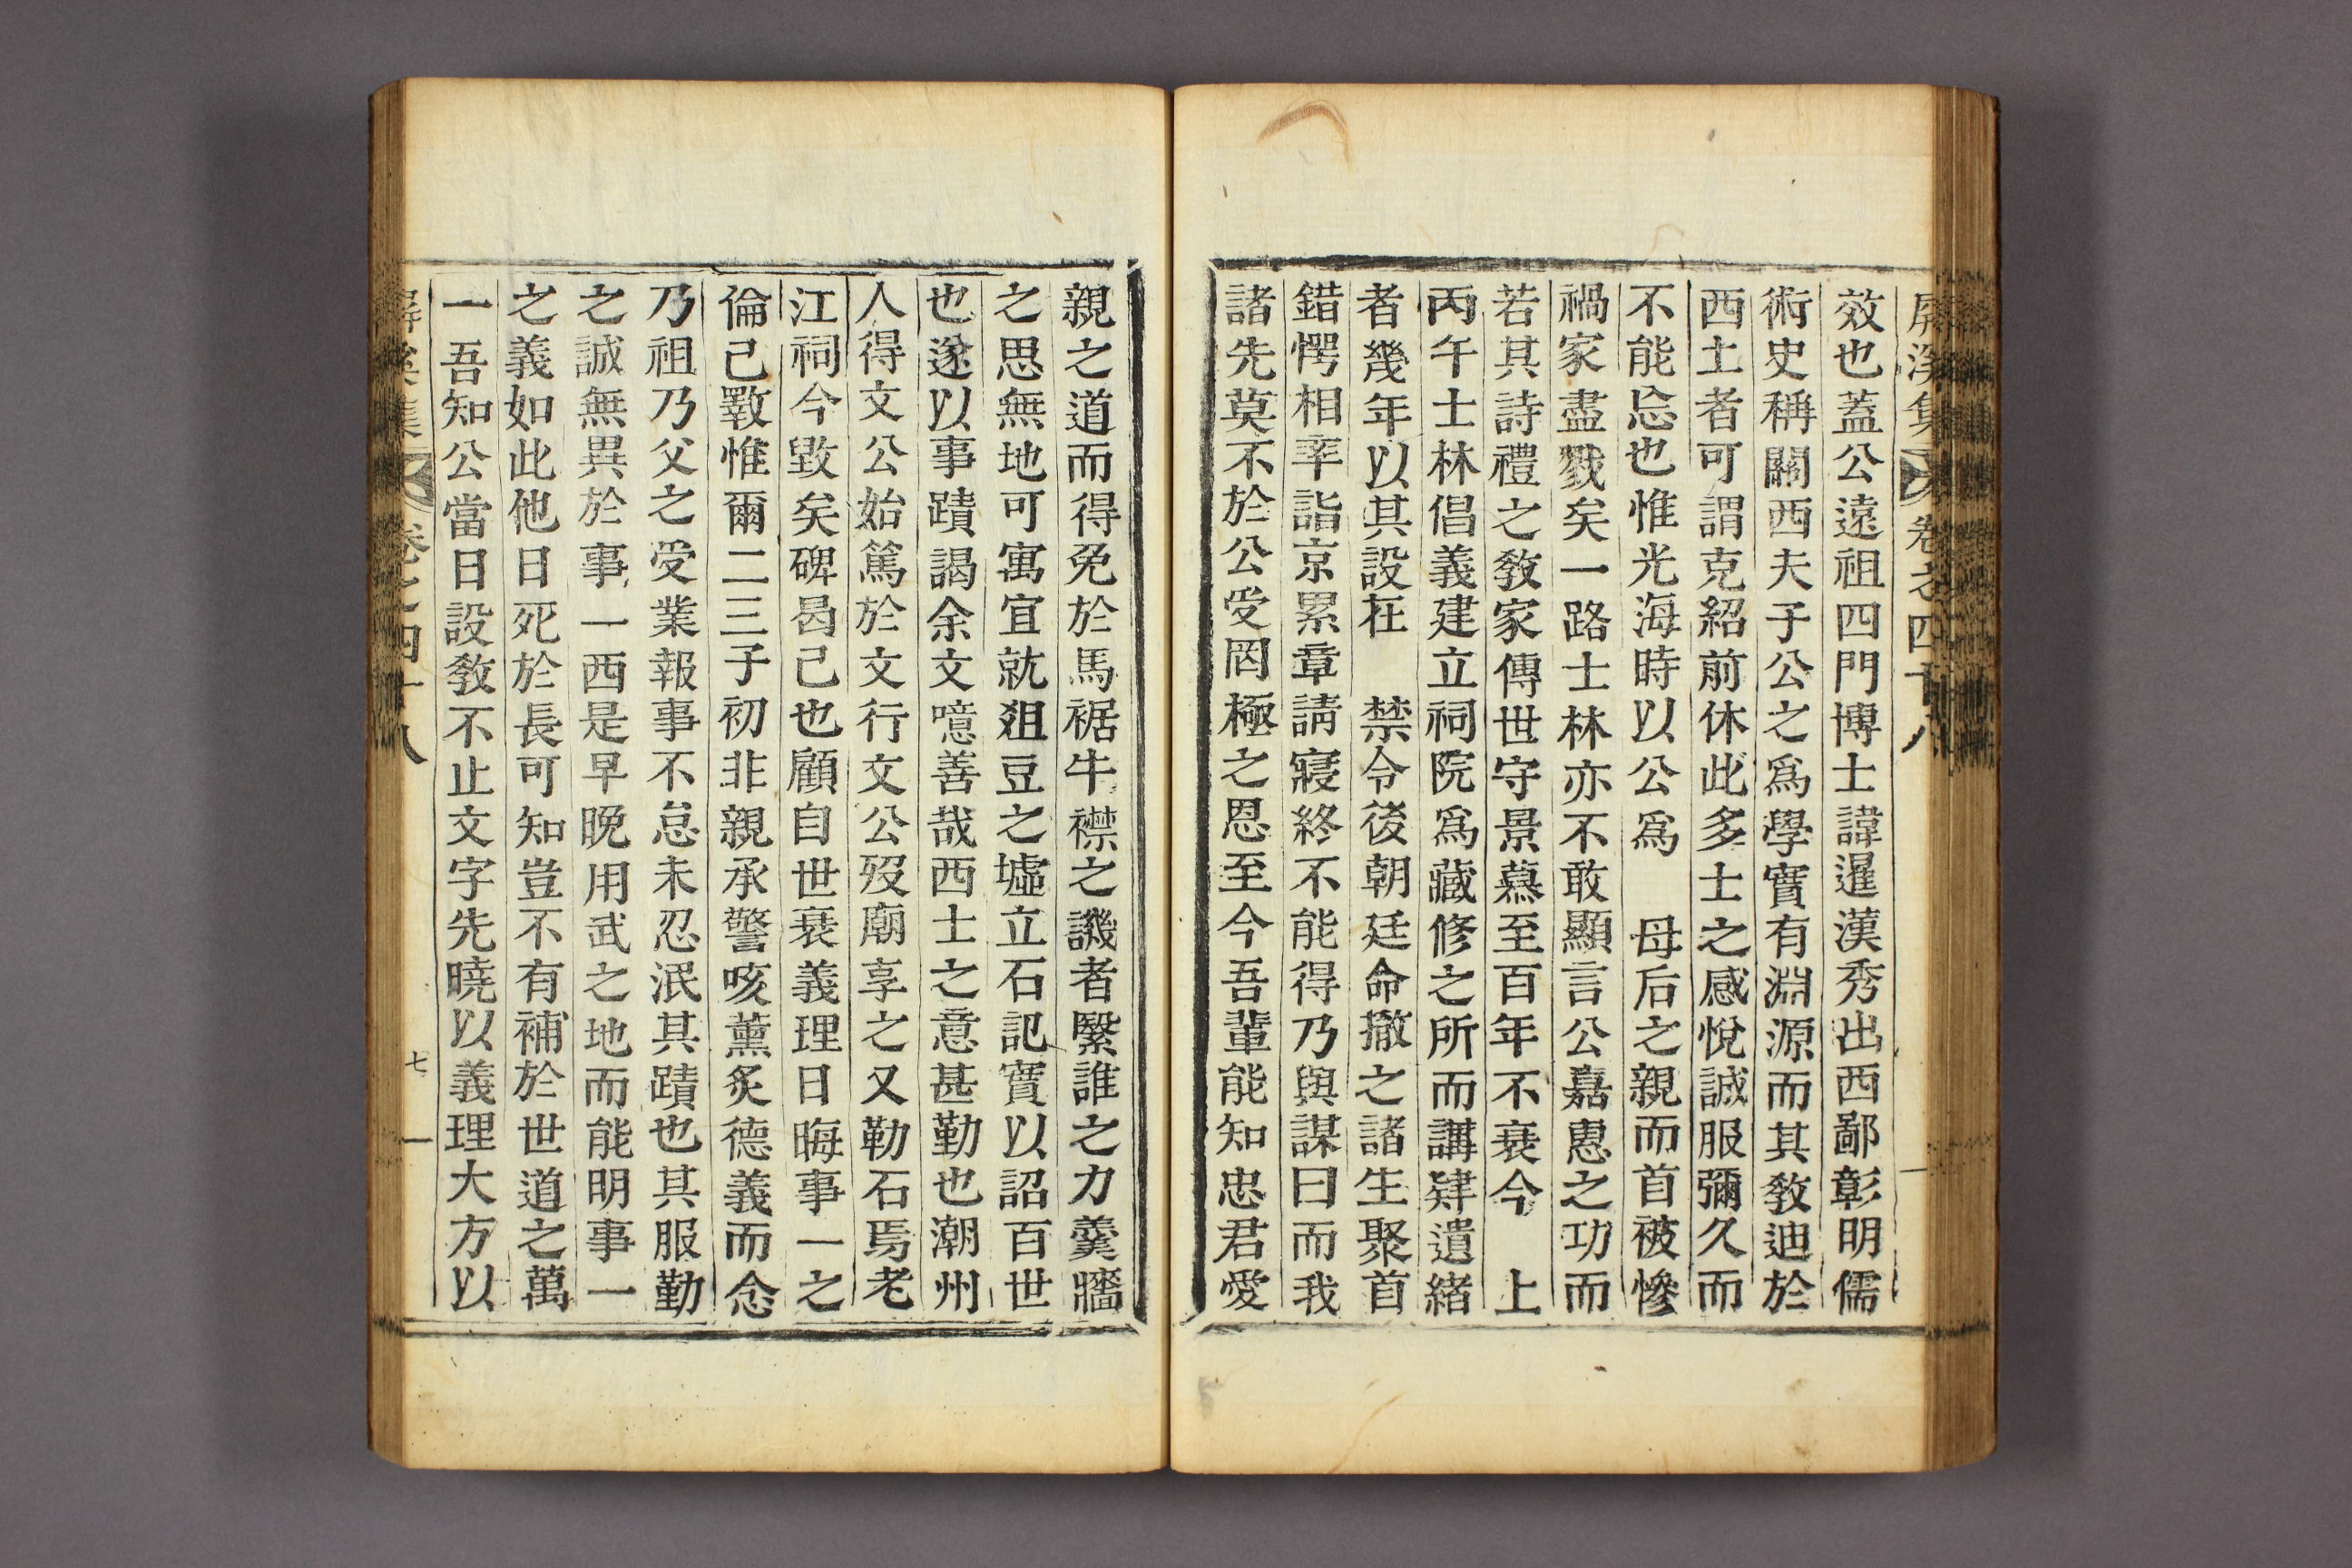 屏溪集 卷之四十八
效也蓋公遠祖四門博士諱暹漢秀出西鄙彰明儒
術史稱關西夫子公之爲學實有淵源而其敎迪於
西土者可謂克紹前休此多士之感悅誠服彌久而
不能忘也惟光海時以公爲 母后之親而首被慘
禍家盡戮矣一路士林亦不敢顯言公嘉惠之功而
若其詩禮之敎家傳世守景慕至百年不衰今 上
丙午士林倡義建立祠院爲藏修之所而講肄遺緖
者幾年以其設在 禁令後朝廷命撤之諸生聚首
錯愕相率詣京累章請寢終不能得乃與謀曰而我
諸先莫不於公受罔極之恩至今吾輩能知忠君愛
親之道而得免於馬裾牛襟之譏者繄誰之力羹牆
之思無地可寓宜就俎豆之墟立石記實以詔百世
也遂以事蹟謁余文噫善哉西士之意甚勤也潮州
人得文公始篤於文行文公歿廟享之又勒石焉老
江祠今毀矣碑曷已也顧自世衰義理日晦事一之
倫已斁惟爾二三子初非親承警咳薰炙德義而念
乃祖乃父之受業報事不怠未忍泯其蹟也其服勤
之誠無異於事一西是早晚用武之地而能明事一
之義如此他日死於長可知豈不有補於世道之萬
一吾知公當日設敎不止文字先曉以義理大方以
屏溪集 卷之四十八 七